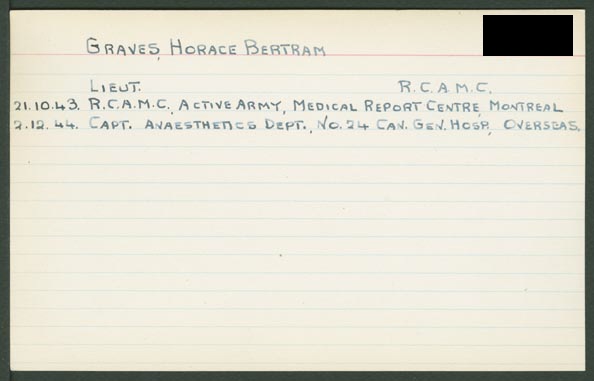 GRAVES, HORACE BERTRAM
LIEUT. R.C.A.M.C.
21.10.43. R.C.A.M.C., ACTIVE ARMY, MEDICAL REPORT CENTRE, MONTREAL
2.12.44. CAPT. ANAESTHETICS DEPT., NO. 24 CAN. GEN. HOSP., OVERSEAS.